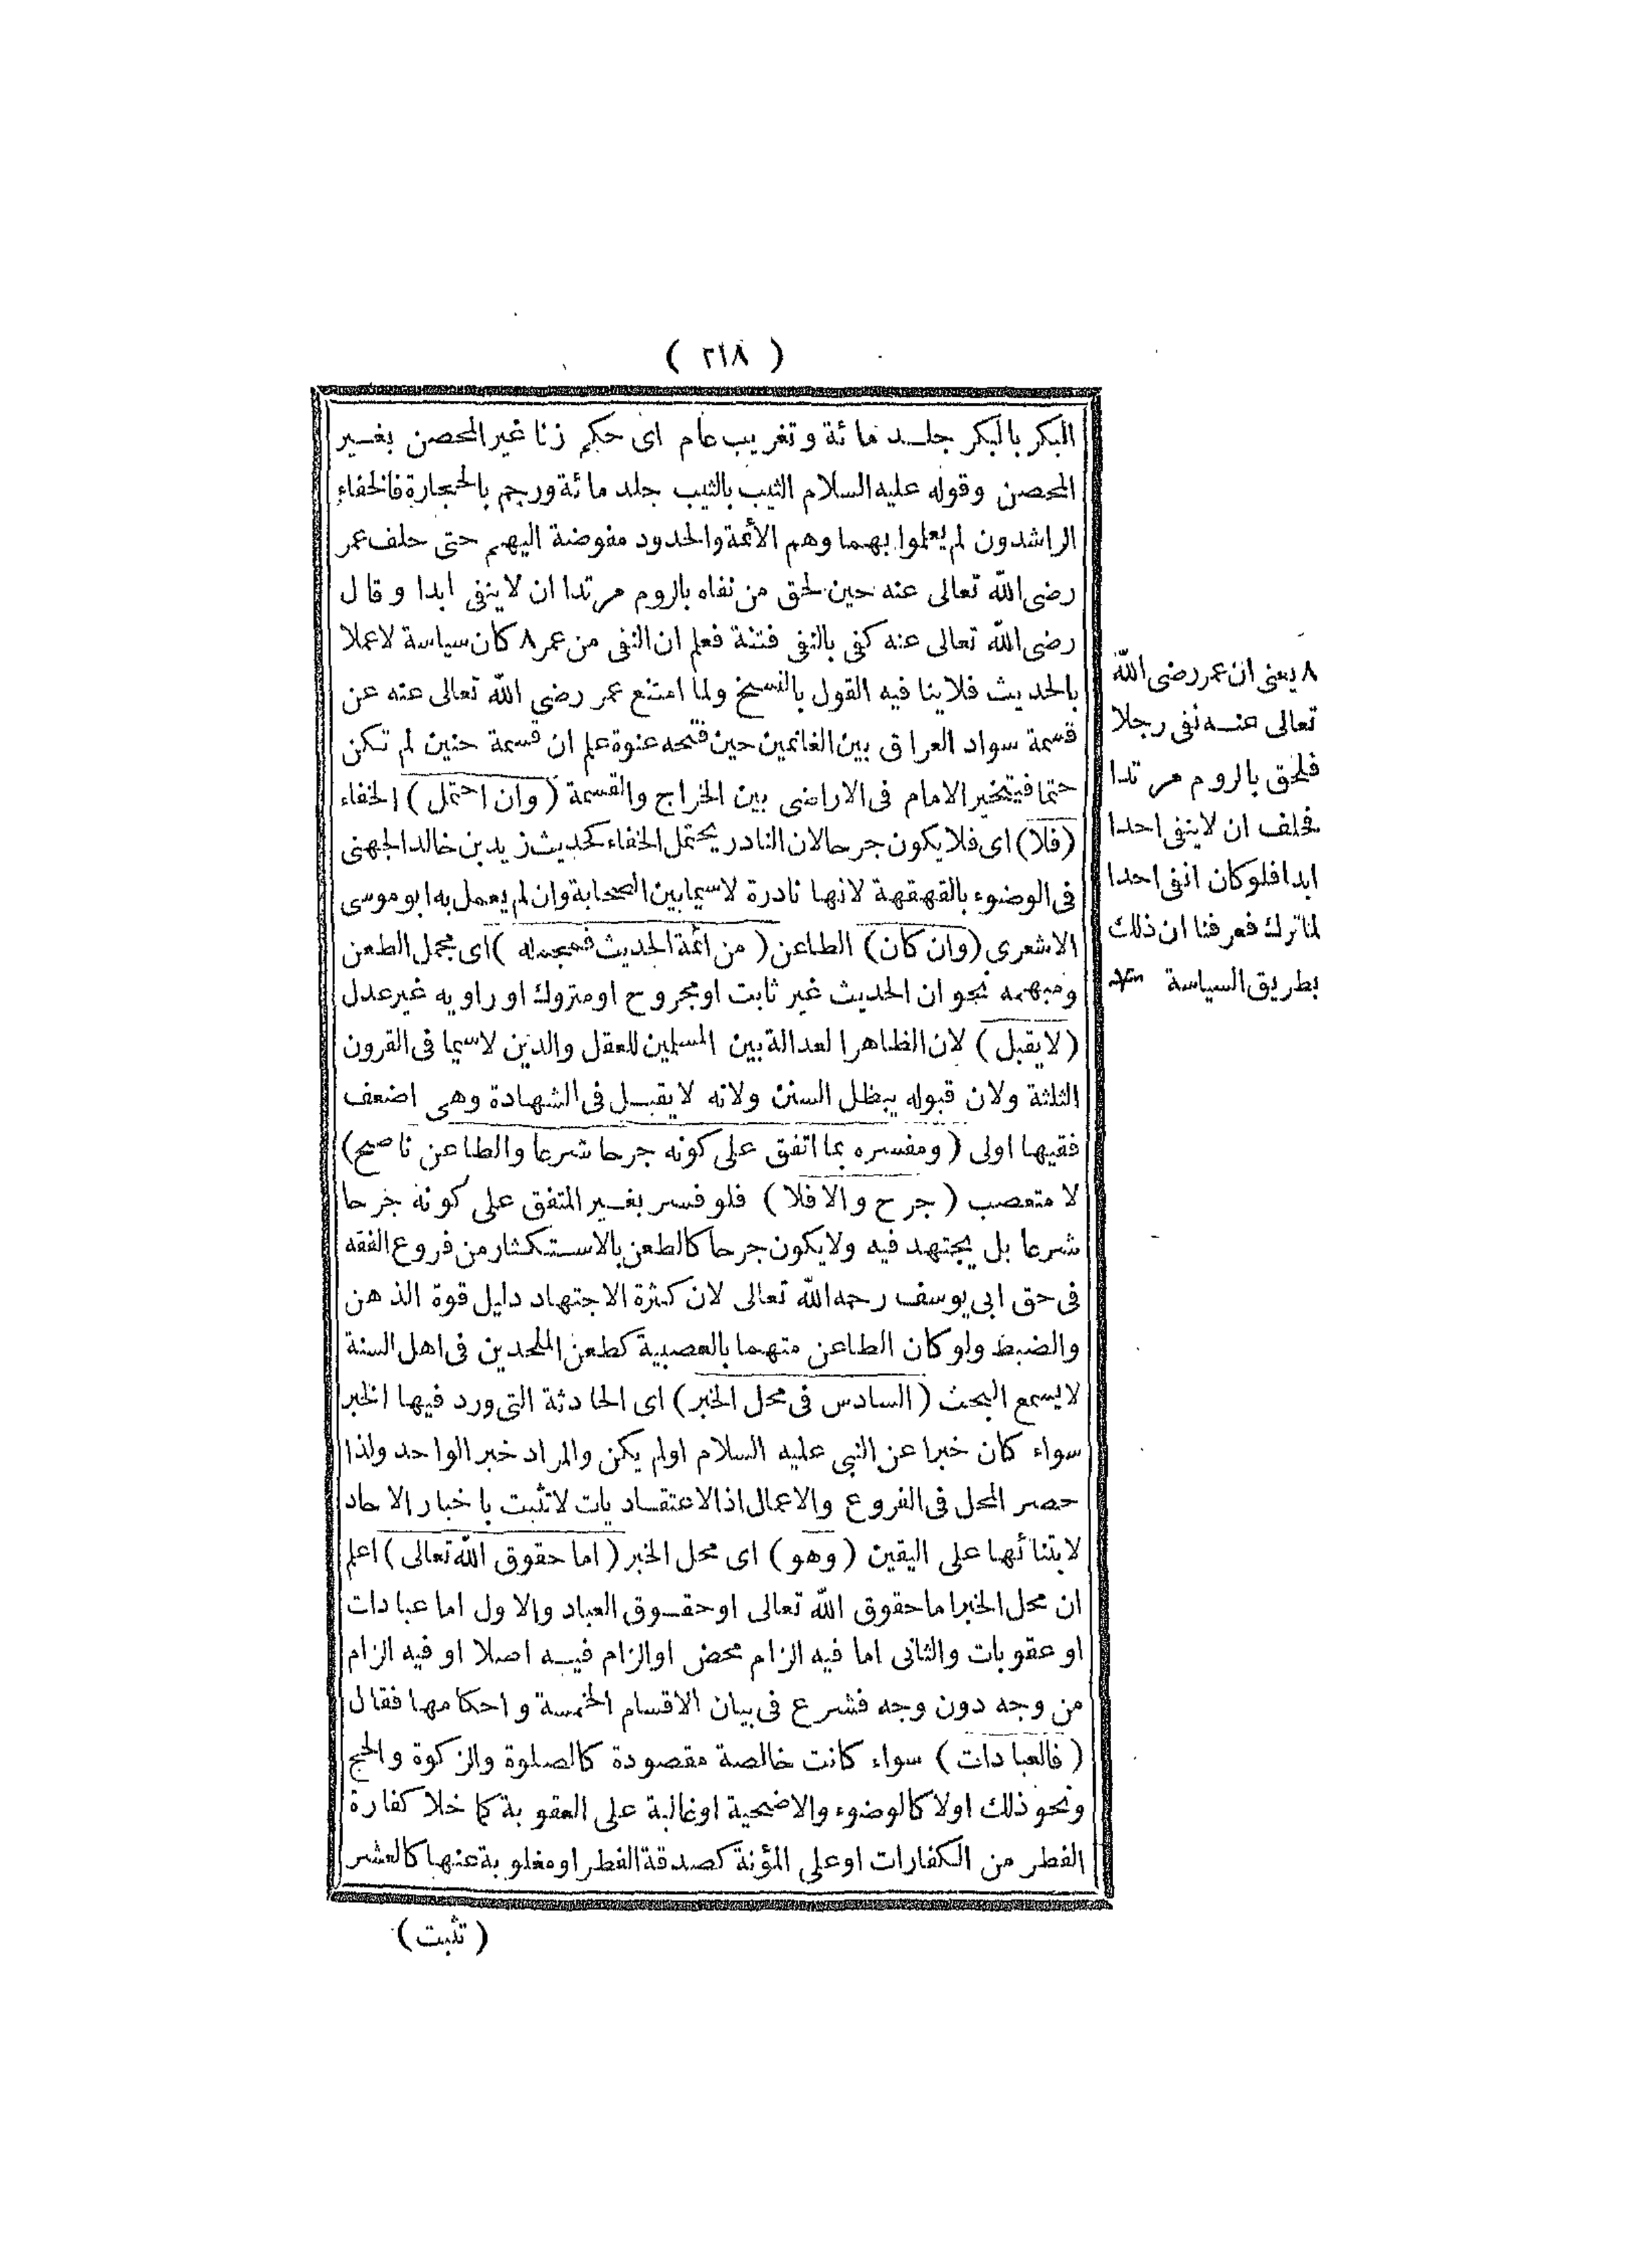 ( ٢١٨ )
البكر بالبكر جلد مائة وتغريب عام اى حكم زنا غير المحصن بغير
المحصن وقوله عليه السلام الثيب بالثيب جلد مائة ورجم بالحجارة فالخلفاء
الراشدون لم يعملوا بهما وهم الأئمة والحدود مفوضة اليهم حتى حلف عمر
رضى الله تعالى عنه حين لحق من نفاه بالروم مرتدا ان لا ينفى ابدا وقال
رضى الله تعالى عنه كفى بالنفى فتنة فعلم ان النفى من عمر ٨ كان سياسة لا عملا
بالحديث فلا ينافيه القول بالنسخ ولما امتنع عمر رضى الله تعالى عنه عن
قسمة سواد العراق بين الغانمين حين فتحه عنوة علم ان قسمة حنين لم تكن
حتما فيتخير الامام فى الاراضى بين الخراج والقسمة ( وان احتمل ) الخفاء
( فلا ) اى فلا يكون جرحا لان النادر يحتمل الخفاء كحديث زيد بن خالد الجهنى
فى الوضوء بالقهقهة لانها نادرة لا سيما بين الصحابة وان لم يعمل به ابو موسى
الاشعرى ( وان كان ) الطاعن ( من ائمة الحديث فمجمله ) اى مجمل الطعن
ومبهمه نحو ان الحديث غير ثابت او مجروح او متروك او راويه غير عدل
( لا يقبل ) لان الظاهر العدالة بين المسلمين للعقل والدين لا سيما فى القرون
الثلثة ولان قبوله يبطل السنن ولانه لا يقبل فى الشهادة وهى اضعف
ففيها اولى ( ومفسره بما اتفق على كونه جرحا شرعا والطاعن ناصح )
لا متعصب ( جرح والا فلا ) فلو فسر بغير المتفق على كونه جرحا
شرعا بل يجتهد فيه ولا يكون جرحا كالطعن بالاستكثار من فروع الفقه
فى حق ابى يوسف رحمه الله تعالى لان كثرة الاجتهاد دليل قوة الذهن
والضبط ولو كان الطاعن متهما بالعصبية كطعن الملحدين فى اهل السنة
لا يسمع البحث ( السادس فى محل الخبر ) اى الحادثة التى ورد فيها الخبر
سواء كان خبرا عن النبى عليه السلام او لم يكن والمراد خبر الواحد ولذا
حصر المحل فى الفروع والاعمال اذ الاعتقاديات لا تثبت باخبار الاحاد
لابتنائها على اليقين ( وهو ) اى محل الخبر ( اما حقوق الله تعالى ) اعلم
ان محل الخبر اما حقوق الله تعالى او حقوق العباد والاول اما عبادات
او عقوبات والثانى اما فيه الزام محض او الزام فيه اصلا او فيه الزام
من وجه دون وجه فشرع فى بيان الاقسام الخمسة واحكامها فقال
( فالعبادات ) سواء كانت خالصة مقصودة كالصلوة والزكوة والحج
ونحو ذلك اولا كالوضوء والاضحية او غالبة على العقوبة كما خلا كفارة
الفطر من الكفارات او على المؤنة كصدقة الفطر او مغلوبة عنها كالعشر
( تثبت )
٨ يعنى ان عمر رضى الله
تعالى عنه نفى رجلا
فلحق بالروم مرتدا
فحلف ان لا ينفى احدا
ابدا فلو كان انفى احدا
لما ترك فعرفنا ان ذلك
بطريق السياسة